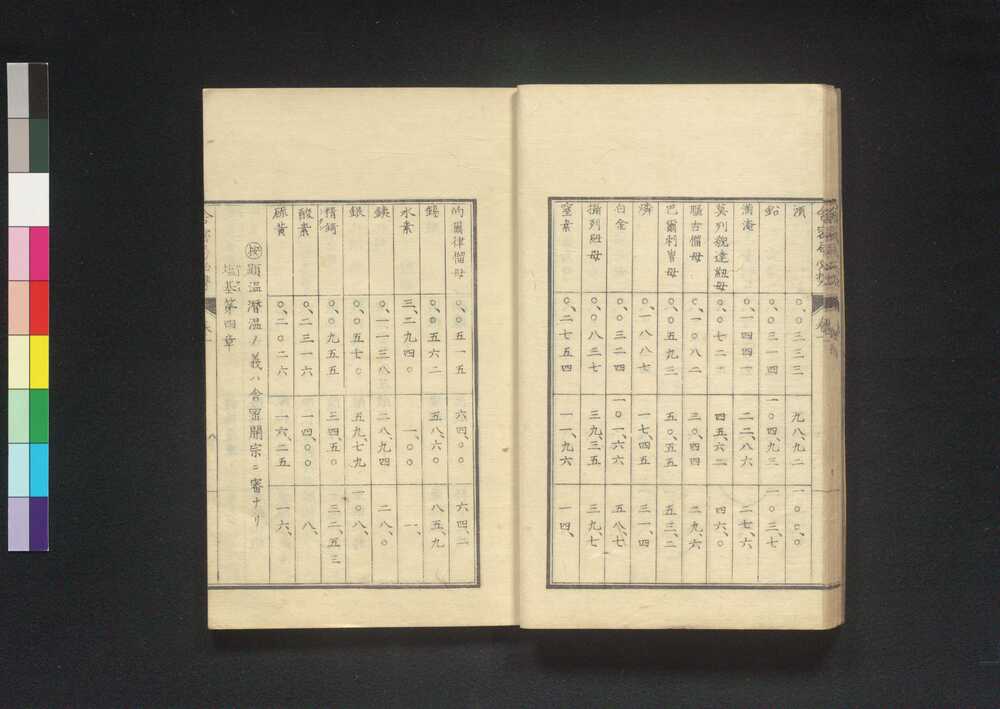 汞 〇、〇三三三 九八、九二 一〇〇、〇
鉛 〇、〇三一四 一〇四、九三 一〇三、七
満淹 〇、一四四一 二二、八六 二七、六
莫列貌達紐母 〇、〇七二二 四五、六二 四六、〇
〇、一〇八二 三〇、四四 二九、六
巴爾刺胄母 〇、〇五九三 五〇、五五 五三、二
燐 〇、一八八七 一七、四五 三一、四
白金 〇、〇三二四 一〇一、六六 五八、七
〇、〇八三七 三九、三五 三九、七
窒素 〇、二七五四 一一、九六 一四、
〇、〇五一五 六四、〇〇 六四、二
錫 〇、〇五六二 五八、六〇 八五、九
水素 三、二九四〇 一、〇〇 一、
鐵 〇、一一三八 二八、九四 二八、〇
銀 〇、〇五七〇 五九、七九 一〇八、
精錡 〇、〇九五五 三四、五〇 三二、五三
酸素 〇、二三一六 一四、〇〇 八、
硫黄 〇、二〇二六 一六、二五 一六、
按 顕温潜温ノ義ハ舎密開宗ニ審ナリ
塩基第四章